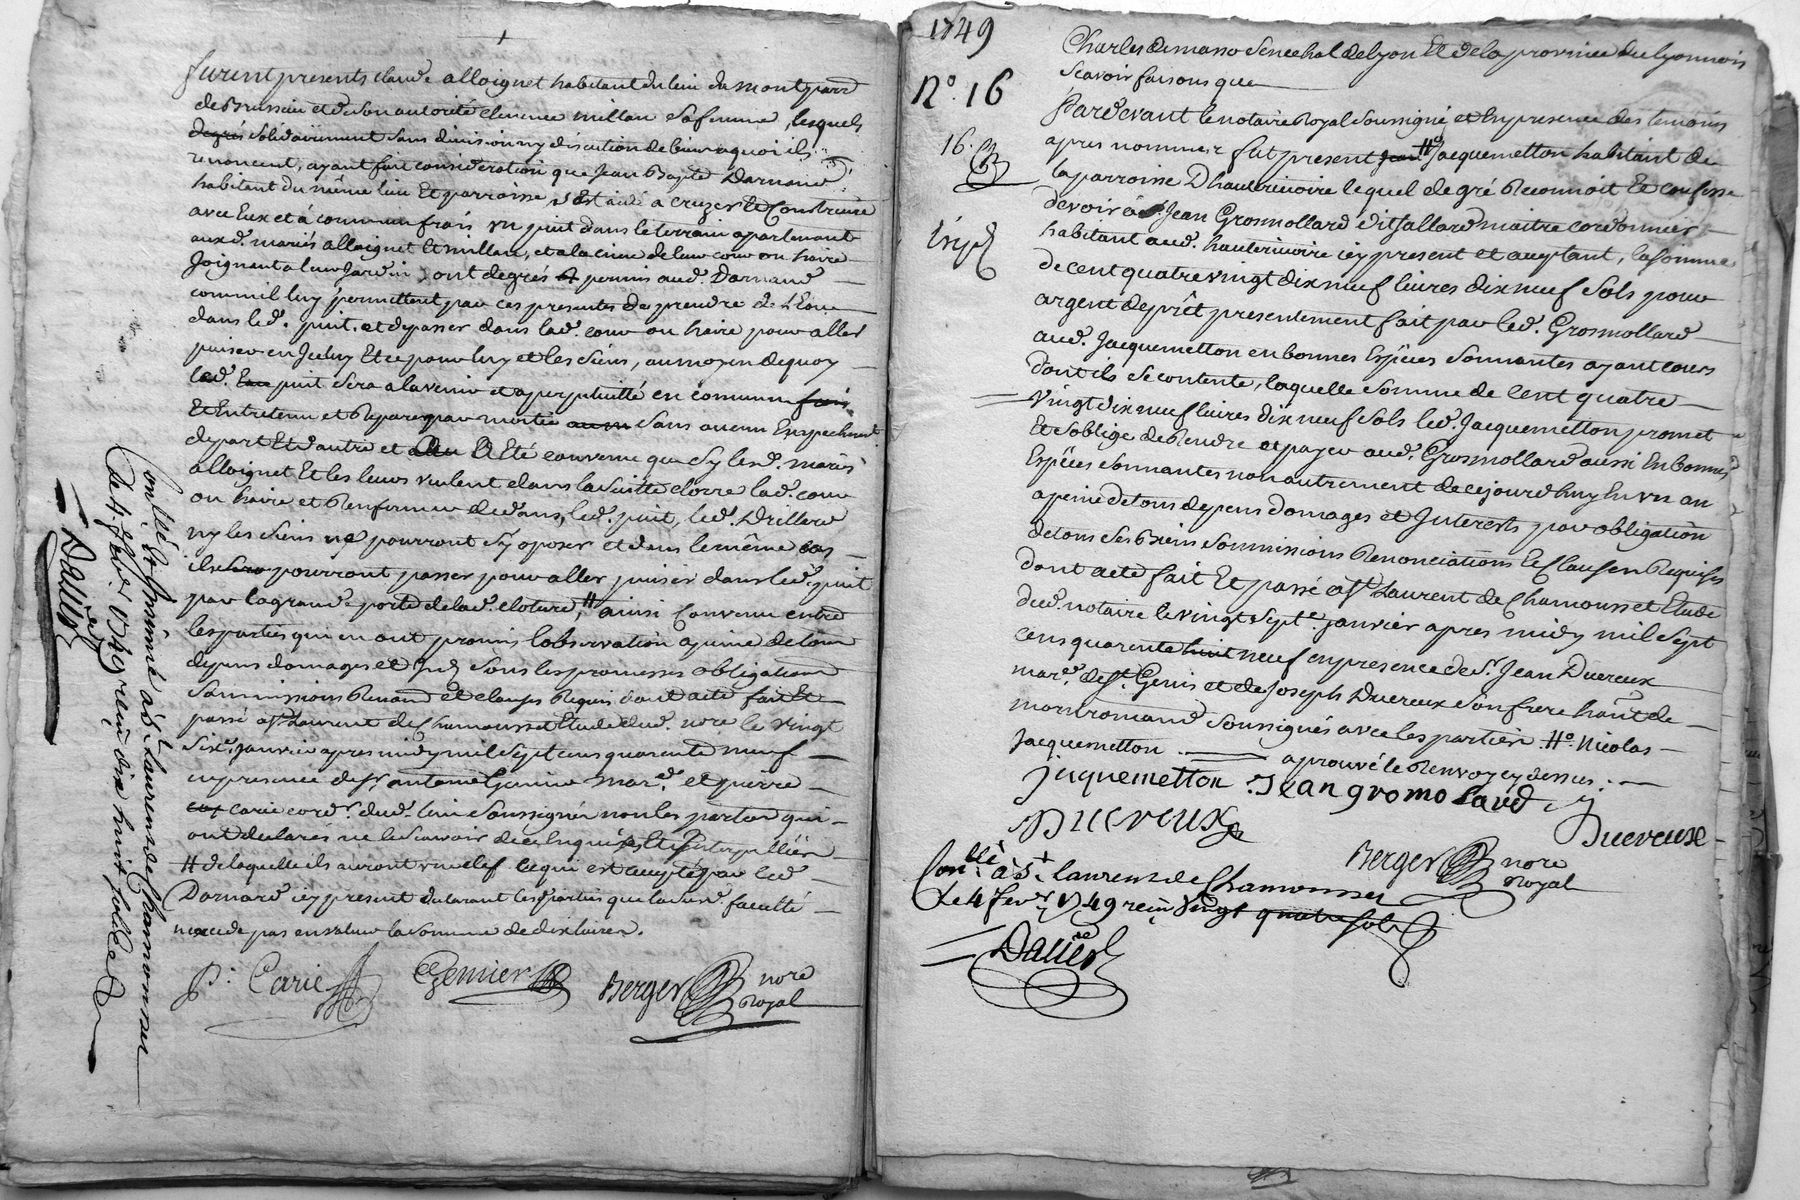 furent presents claude alloignet habitant du lieu du montparré
de Brussieu et de son autorité clemence millan sa femme, lesquels
degrés solidairement sans division ny discution de biens a quoi ils
renoncent, ayant fait consideration que Jean Bapte Darnand
habitant du même lieu Et parroisse s'est aidé a cruzer et Construire
avec Eux et à commun frais un puit dans le terrain apartenant
auxd. mariés alloignet et millan, et a la cime de leur cour ou haire
Joignant a leur Jardin, ont degrés permis aud. Darnand
comm'il luy permettent par ces presentes de prendre de l'Eau
dans led. puit, et de passer dans lad. cour ou haire pour aller
puiser en Iceluy Et ce pour luy et les siens, au moyen de quoy
led. Eau puit sera a l'avenir et a perpetuitté en commun frais
Et Entretenu et Reparer par moitié sans aucun Empechement
de part Et d'autre et a Eté convenu que sy lesd. mariés
alloignet Et les leurs veulent dans la suitte clorre lad. cour
ou haire et Renfermer dedans led. puit, led.
ny les siens ne pourront s'y oposer et dans le même cas
ils pourront passer pour aller puiser dans led. puit
par la grande porte de lad. cloture, # ainsi Convenu entre
les parties qui en ont promis l'observation a peine de tous
depens domages et Int. sous les promesses obligations
Soumissions Renond. et clauses Requis dont acte fait Et
passé a St. Laurent de Chamousset Etude dud. nore le vingt
Six. Janvier apres midy mil sept cens quarente neuf
en presence de Sr. antoine Genier mard. et pierre
Carie cordr. dud. lieu soussignés non les parties qui
ont declarés ne le scavoir de ce Enquis et Interpellées
# de laquelle ils auront une clef ce qui est accepté par led.
Darnard icy present declarant les parties que lad. faculté
n'excede pas en valeur la somme de dix livres.
P. Carie Genier Berger nore
Royal
Conllé & Insinué à St. Laurens de Chamousset
le 4. fevr. 1749 reçu dix huit sols
Dalier
1749
No. 16
16.
Exp.
Charles demasso Senechal de lyon Et de la province du lyonnois
Scavoir faisons que
Pardevant le notaire Royal soussigné et En presence des temoins
apres nommez fut present Jean # Jacquemetton habitant de
la parroisse D'hauterivoire lequel de gré Reconnoit Et confesse
devoir à Sr. Jean Grosmollard dit Jallard maitre cordonnier
habitant aud. hauterivoire icy present et acceptant, la somme
de cent quatre vingt dix neuf livres dix neuf sols pour
argent de prêt presentement fait par led. Grosmollard
aud. Jacquemetton en bonnes Espêces sonnantes ayant cours
dont ils se contente, laquelle somme de cent quatre
vingt dix neuf livres dix neuf sols led. Jacquemetton promet
Et s'oblige de Rendre et payer aud. Grosmollard aussi En bonnes
Espêces sonnantes non autrement de ce jourd'huy En un an
a peine de tous depens domages et Interests par obligation
de tous ses Biens soumissions Renonciations Et Clauses Requises
dont acte fait Et passé a St. Laurent de Chamousset Etude
dud. notaire le vingt sept. janvier apres midy mil sept
cens quarente huit neuf en presence de Sr. Jean Ducreux
mard. de St. Genis et de Joseph Ducreux son frere habt. de
montromand soussignés avec les parties. #. Nicolas
Jacquemetton aprouvé le Renvoy cy dessus.
jaquemetton Jean gromolard
Ducreux Ducreux
Berger nore
Royal
Conllé à St. laurens de Chamousset
Le 4 fevr. 1749 reçu vingt quatre sols
Dalier